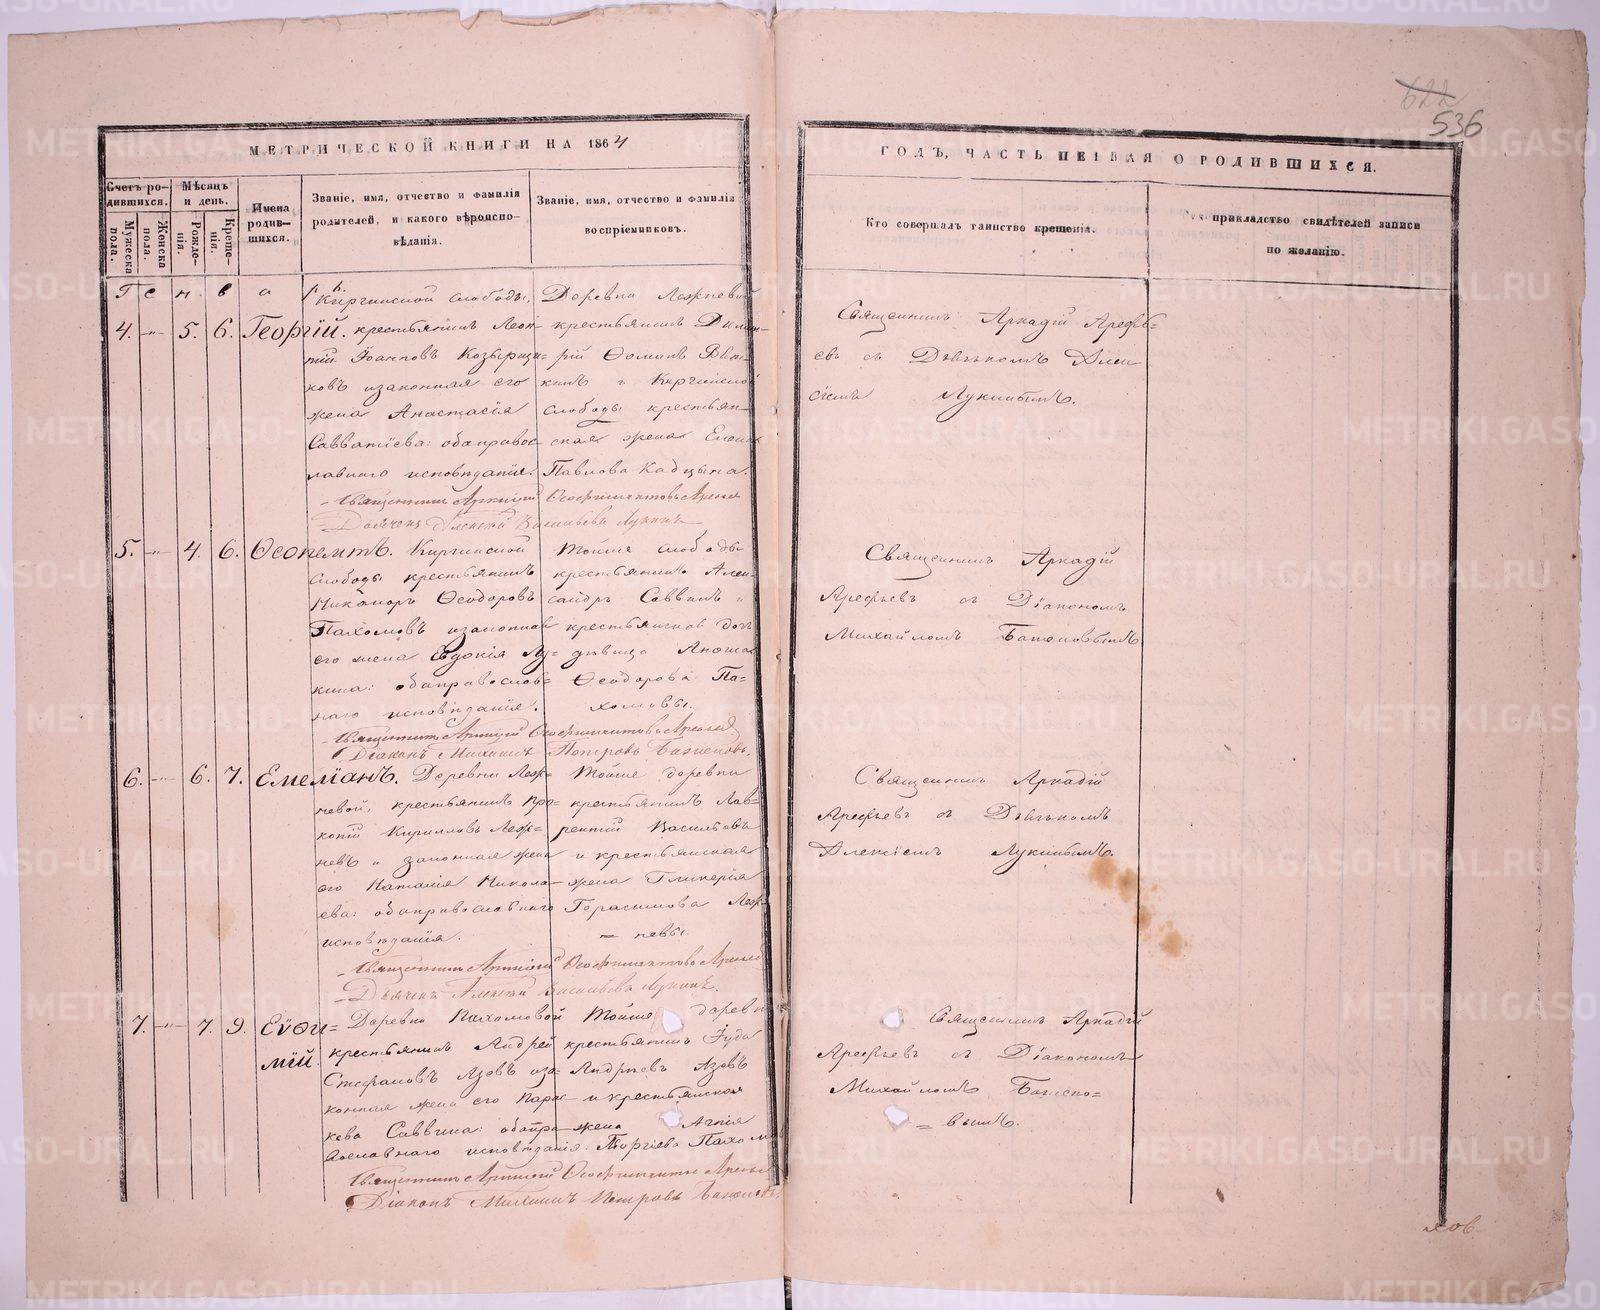 622
536
МЕТРИЧЕСКОЙ КНИГИ НА 1864
ГОДЪ, ЧАСТЬ ПЕРВАЯ О РОДИВШИХСЯ.
Счетъ ро-
дившихся.
Мужеска пола.
Женска пола.
Мѣсяцъ
и день.
Рожде-
нія.
Креще-
нія.
Имена
родив-
шихся.
Званіе, имя, отчество и фамилія
родителей, и какого вѣроиспо-
вѣданія.
Званіе, имя, отчество и фамилія
воспріемниковъ.
Кто совершалъ таинство крещенія.
прикладство свидѣтелей записи
по желанію.
Генваря
4. -"- 5. 6. Георгій.
Киргинской слободы,
крестьянинъ Леон-
тій Іоанновъ Козырчи-
ковъ изаконная его
жена Анастасія
Савватіева: обаправос-
лавнаго исповѣданія.
Деревни Лежневой
крестьянинъ Димит-
рій Ѳоминъ
и Киргинской
слободы крестьян-
ская жена
Павлова Кадцына.
Священникъ Аркадій Арефь-
евъ съ Дьячькомъ Алек-
сіемъ Лукинымъ.
Священникъ Аркадій Ѳеофилактовъ Арефьев
Дьячекъ Алексѣй Васильевъ Лукинъ
5. -"- 4. 6. Ѳеопемтъ.
Киргинской
слободы крестьянинъ
Никаноръ Ѳеодоровъ
Пахомовъ изаконная
его жена Евдокія Лу-
кина: обаправослав-
наго исповѣданія.
Тойже слободы
крестьянинъ Алек-
сандръ Саввинъ и
крестьянская доч
дѣвица
Ѳеодорова Па-
хомовы.
Священникъ Аркадій
Арефьевъ съ Діакономъ
Михайломъ Баженовымъ
Священникъ Аркадій Ѳеофилактовъ Арефьев
Діаконъ Михаилъ Петровъ Баженовъ.
6. -"- 6. 7. Емеліанъ.
Деревни Леж-
невой, крестьянинъ Про-
копій Кирилловъ Леж-
невъ и законная жена
его Наталія Никола-
ева: обаправославнаго
исповѣданія.
Тойже деревни
крестьянинъ Лав-
рентій Васильевъ
и крестьянская
жена Гликерія
Герасимова Леж-
= невы.
Священникъ Аркадій
Арефьевъ съ Дьячькомъ
Алексіемъ Лукинымъ.
Священникъ Аркадій Ѳеофилактовъ Арефьев
Дьячекъ Алексѣй Васильевъ Лукинъ.
7. -"- 7. 9. Евѳи=
мій.
Деревни Пахомовой
крестьянинъ Андрей
Стефановъ Азовъ иза-
конная жена его Парас-
кева Саввина: обапра-
вославнаго исповѣданія.
Тойже деревни
крестьянинъ Іуда
Андреевъ Азовъ
и крестьянская
жена Агнія
Георгіева Пахомов
Священникъ Аркадій
Арефьевъ съ Діакономъ
Михайломъ Бажено=
= вымъ.
Священникъ Аркадій Ѳеофилактовъ Арефьев
Діаконъ Михаилъ Петровъ Баженовъ
METRIKI.GASO-URAL.RU